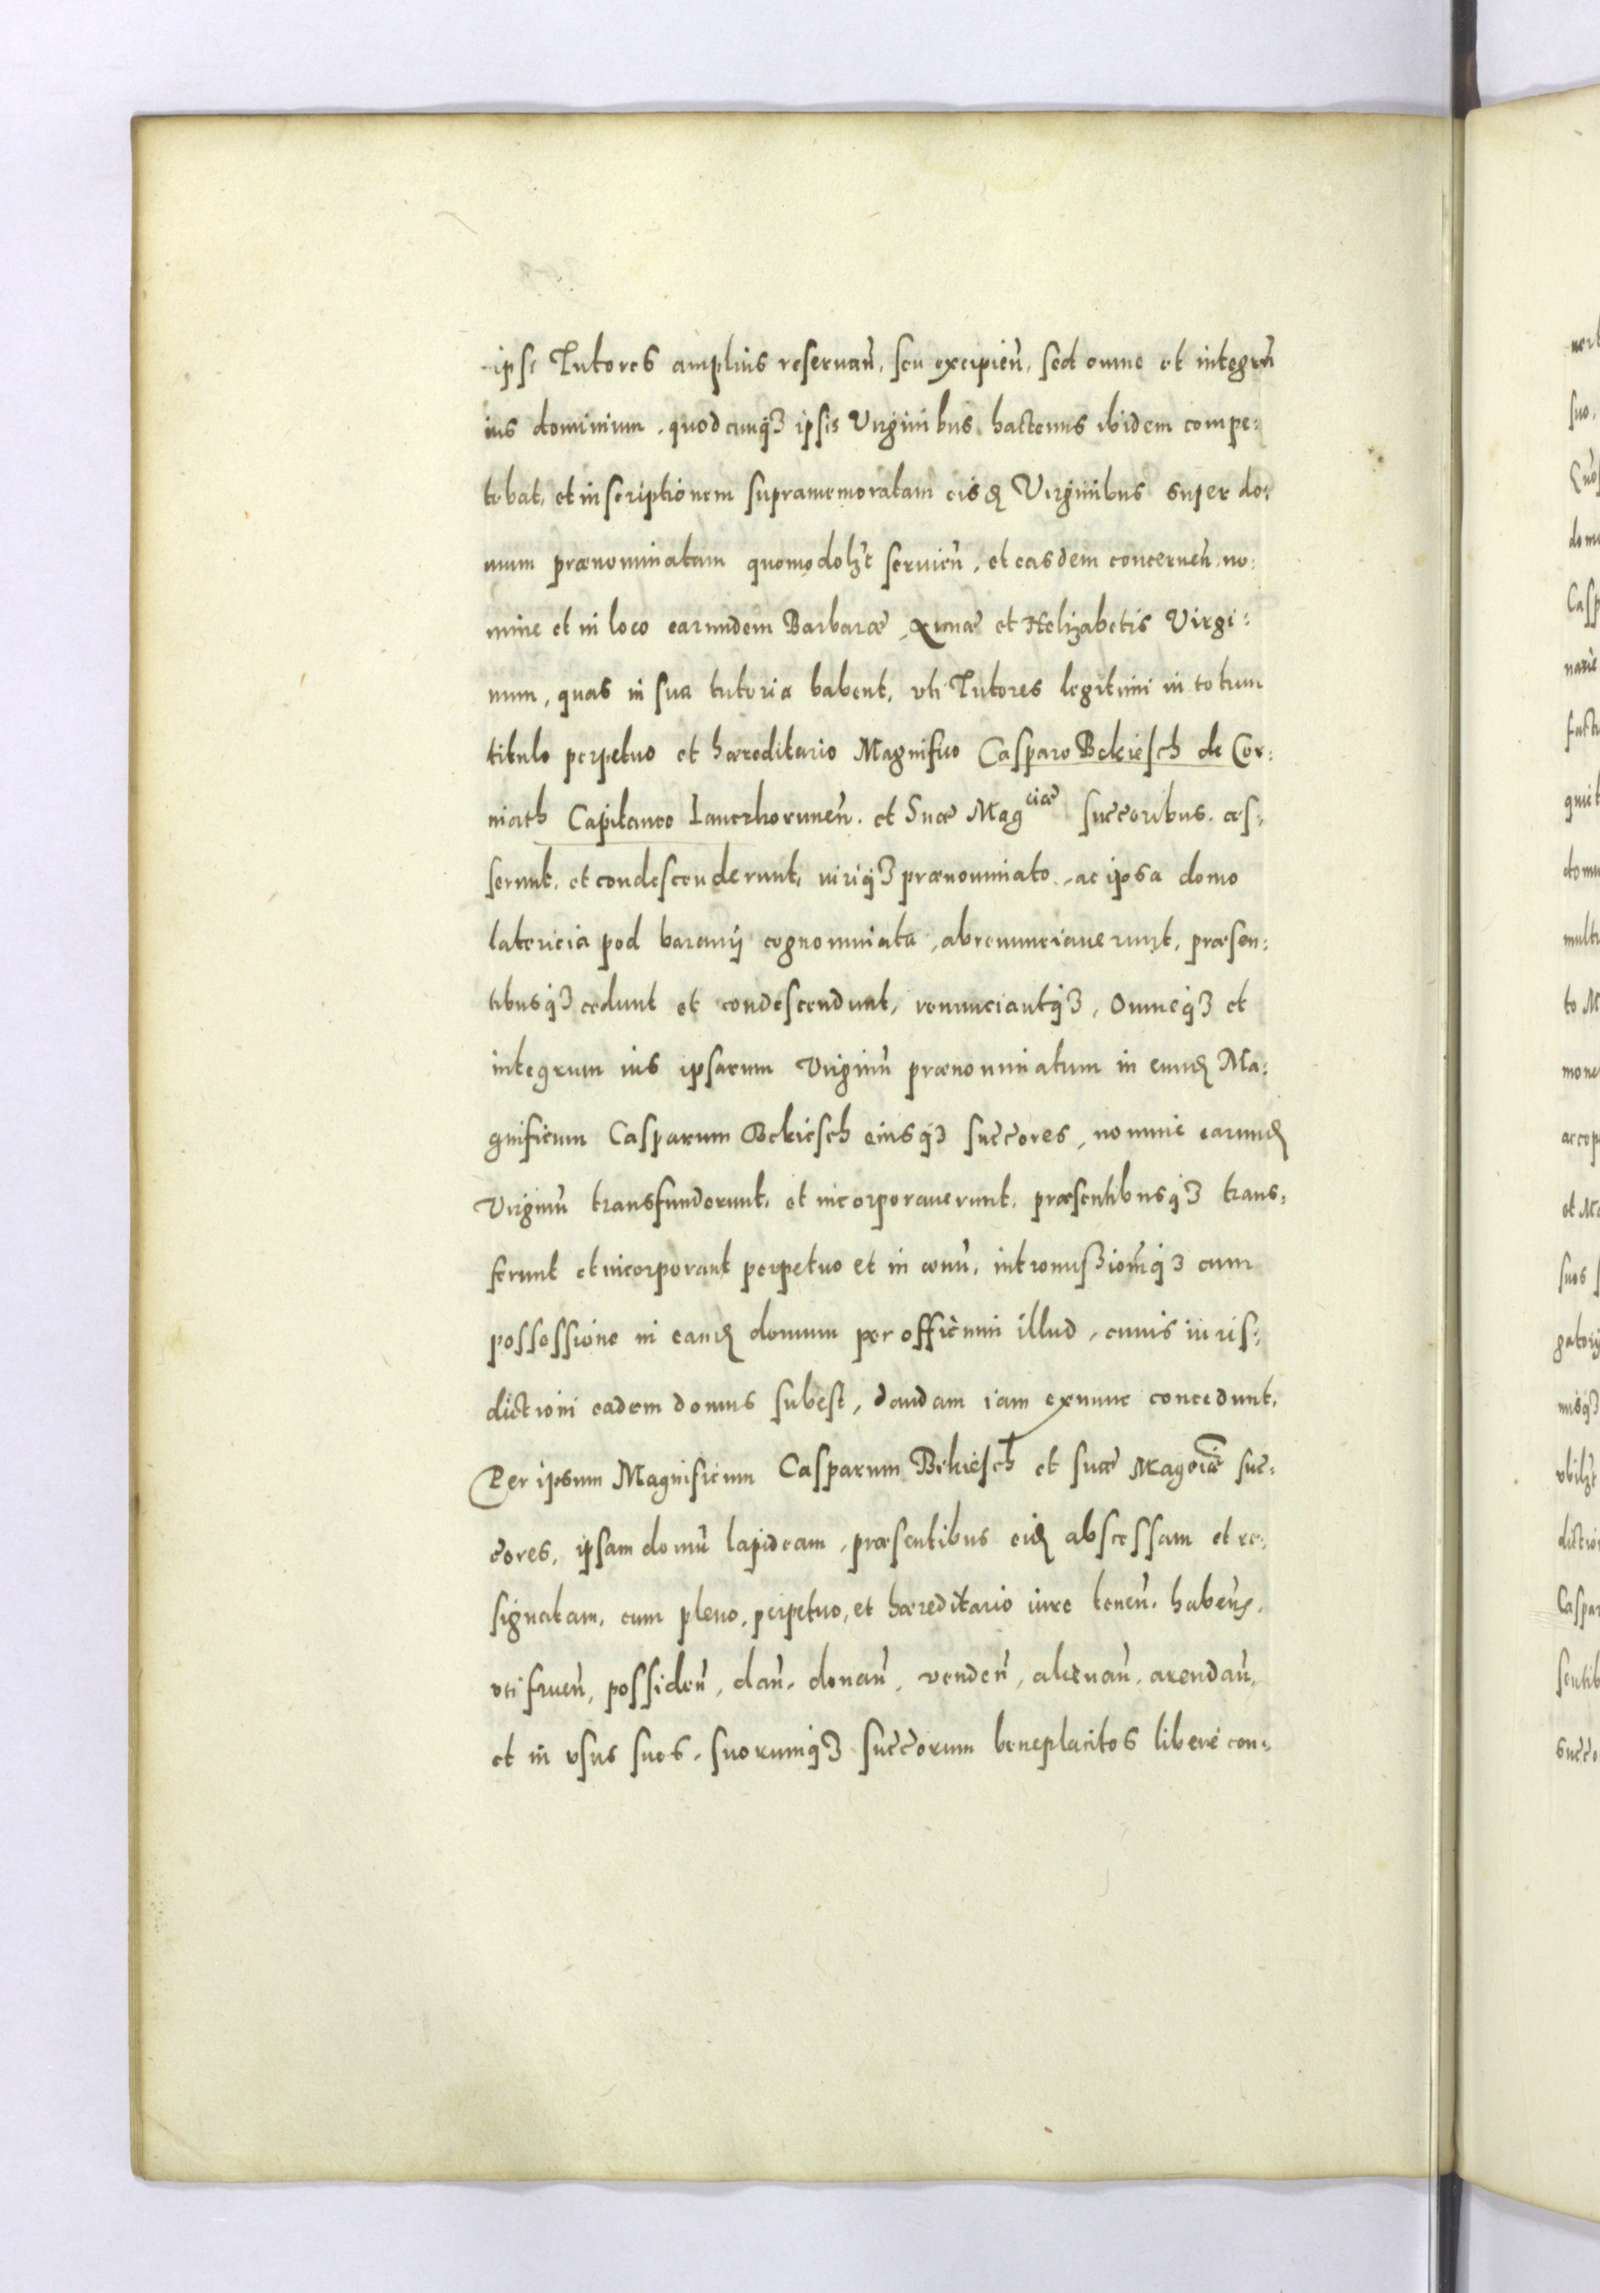 ipsi Tutores amplius reseruan̄, seu excipien̄, sed omne et integrū
ius dominium, quodcunq3 ipsis Virginibus hactenus ibidem compe:
tebat, et inscriptionem supramemoratam eisd Virginibus super do:
mum prænominatam quomodolꝫt seruien̄, et easdem concernen̄, no:
mine et in loco earundem Barbaræ, Annæ et Helizabetis Virgi:
num, quas in sua tutoria habent, vti Tutores legitimi in totum
titulo perpetuo et hæreditario Magnifico Casparo Bekiesch de Cor:
niath Capitaneo Lanczkorunen̄. et Suæ Magciæ succ̄oribus. ces:
serunt, et condescenderunt, iuriq3 prænominato, ac ipsa domo
latericia pod barany cognominata, abrenunciauerunt, præsen:
tibusq3 cedunt et condescendunt, renunciantq3, Omneq3 et
integrum ius ipsarum Virginū prænominatum in eund Ma:
gnificum Casparum Bekiesch eiusq3 succ̄ores, nomine earund
Virginū transfuderunt, et incorporauerunt, præsentibusq3 trans:
ferunt et incorporant perpetuo et in æuū, intromißiom̄q3 cum
possessione in eand domum per officium illud, cuius iuris:
dictioni eadem domus subest, dandam iam exnunc concedunt,
Per ipsum Magnificum Casparum Bekiesch et suæ Magciæ suc:
c̄ores, ipsam domū lapideam, præsentibus eid abscessam et re:
signatam, cum pleno, perpetuo, et hæreditario iure tenen̄. haben̄,
vti fruen̄, possiden̄, dan̄. donan̄, venden̄, alienan̄. arendan̄,
et in vsus suos, suorumq3 succ̄orum beneplacitos libere con: